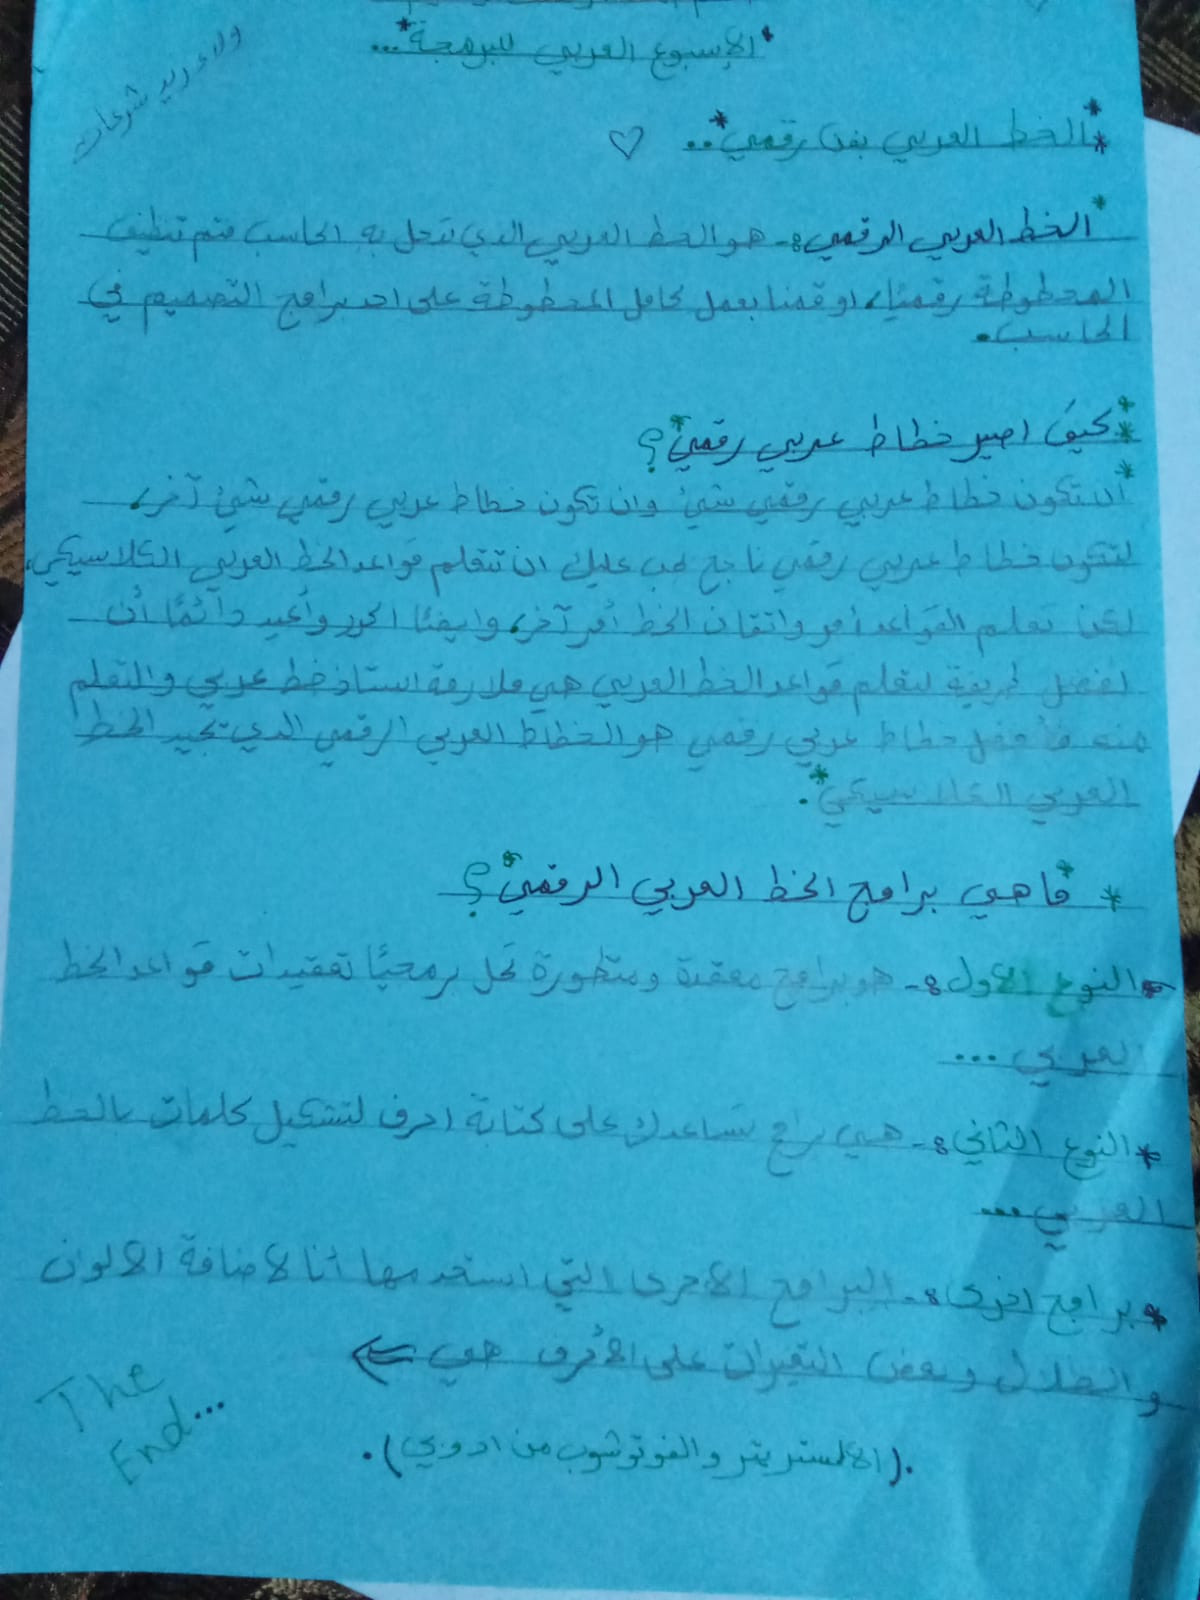 *الإسبوع العربي للبرمجة*...
ولاء زيد شرعان
**الخط العربي بفن رقمي*.. ♡
*الخط العربي الرقمي:- هو الخط العربي الذي تدخل به الحاسب فتم تنظيف
المخطوطة رقميًا، او قمنا بعمل كامل المخطوطة على احد برامج التصميم في
الحاسب.
**كيف اصير خطاط عربي رقمي*؟
*ان تكون خطاط عربي رقمي شئ وان تكون خطاط عربي رقمي شئ آخر،
لتكون خطاط عربي رقمي ناجح يجب عليك ان تتعلم قواعد الخط العربي الكلاسيكي،
لكن تعلم القواعد أمر واتقان الخط أمر آخر، وايضًا اكرر وأعيد دآئمًا أن
افضل طريقة لتعلم قواعد الخط العربي هي ملازمة استاذ خط عربي والتعلم
منه فأفضل خطاط عربي رقمي هو الخطاط العربي الرقمي الذي يجيد الخط
العربي الكلاسيكي*.
* *ما هي برامج الخط العربي الرقمي*؟
*النوع الأول:- هو برامج معقدة ومتطورة تحل برمجيًا تعقيدات قواعد الخط
العربي...
*النوع الثاني:- هي برامج تساعدك على كتابة احرف لتشكيل كلمات بالخط
العربي...
*برامج اخرى:- البرامج الأخرى التي استخدمها انا لاضافة الالوان
والظلال وبعض التغيرات على الأحرف هي
.(الالستريتر والفوتوشوب من ادوبي).
The
End...